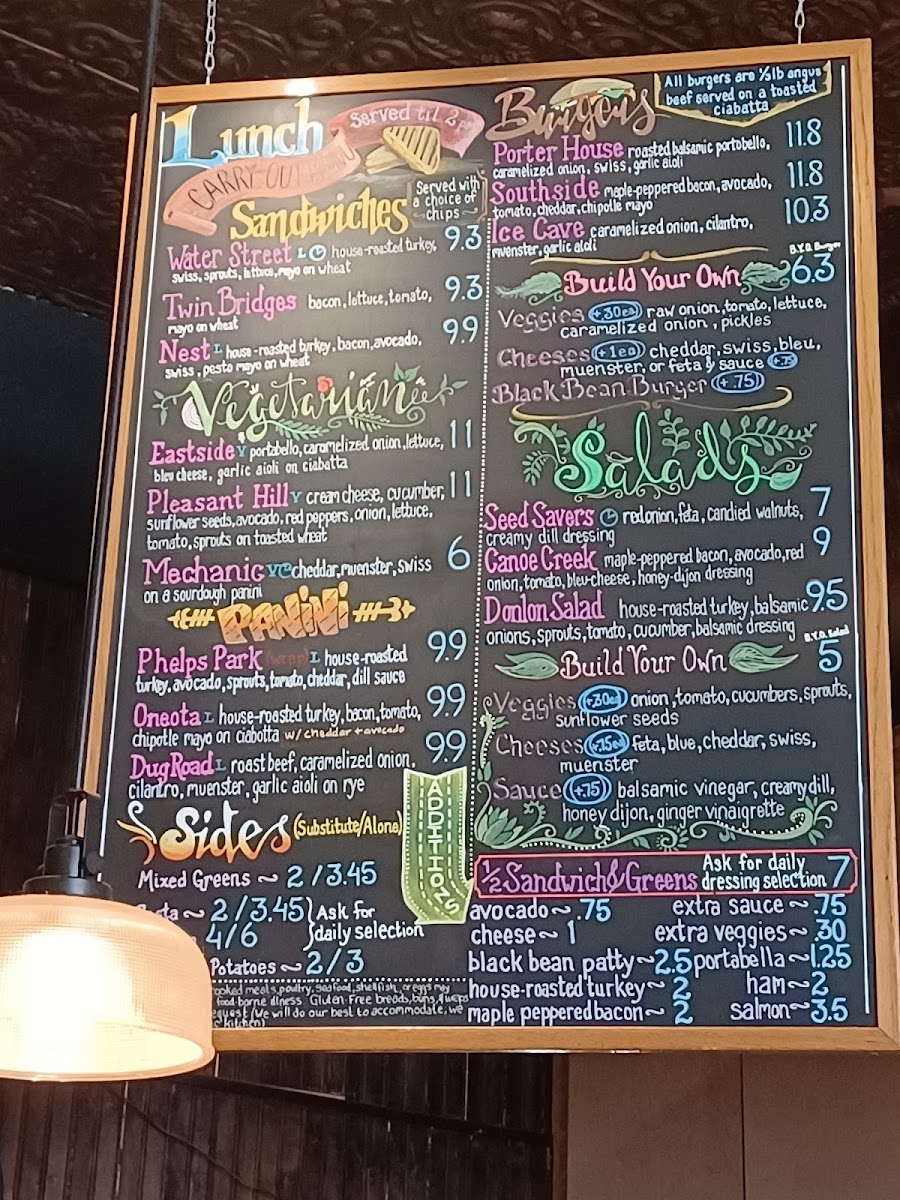 Lunch
Served til 2 pm
CARRY OUT
Sandwiches
Served with
a choice of
chips
Water Street L house-roasted turkey, 9.3
swiss, sprouts, lettuce, mayo on wheat
Twin Bridges bacon, lettuce, tomato, 9.3
mayo on wheat
Nest L house-roasted turkey, bacon, avocado, 9.9
swiss, pesto mayo on wheat
Vegetarian
Eastside V portabello, caramelized onion, lettuce, 11
bleu cheese, garlic aioli on ciabatta
Pleasant Hill V cream cheese, cucumber, 11
sunflower seeds, avocado, red peppers, onion, lettuce,
tomato, sprouts on toasted wheat
Mechanic cheddar, muenster, swiss 6
on a sourdough panini
PANiNi
Phelps Park (wrap) L house-roasted 9.9
turkey, avocado, sprouts, tomato, cheddar, dill sauce
Oneota L house-roasted turkey, bacon, tomato, 9.9
chipotle mayo on ciabotta w/ cheddar + avocado
Dug Road L roast beef, caramelized onion, 9.9
cilantro, muenster, garlic aioli on rye
Sides (Substitute/Alone)
Mixed Greens ~ 2/3.45
~ 2/3.45 Ask for
4/6 daily selection
Potatoes ~ 2/3
meats, poultry, seafood, shellfish, or eggs may
food-borne illness Gluten-Free breads, buns, & wraps
(We will do our best to accommodate, we
kitchen)
Burgers
All burgers are 1/3 lb angus
beef served on a toasted
ciabatta
Porter House roasted balsamic portobello, 11.8
caramelized onion, swiss, garlic aioli
Southside maple-peppered bacon, avocado, 11.8
tomato, cheddar, chipotle mayo
Ice Cave caramelized onion, cilantro, 10.3
muenster, garlic aioli
B.Y.O. Burger
Build Your Own 6.3
Veggies (+.30ea) raw onion, tomato, lettuce,
caramelized onion, pickles
Cheeses (+1ea) cheddar, swiss, bleu,
muenster, or feta & sauce +.75
Black Bean Burger (+.75)
Salads
Seed Savers red onion, feta, candied walnuts, 7
creamy dill dressing
Canoe Creek maple-peppered bacon, avocado, red 9
onion, tomato, bleu-cheese, honey-dijon dressing
Donlon Salad house-roasted turkey, balsamic 9.5
onions, sprouts, tomato, cucumber, balsamic dressing
B.Y.O. Salad
Build Your Own 5
Veggies (+.30ea) onion, tomato, cucumbers, sprouts,
sunflower seeds
Cheeses (+.75ea) feta, blue, cheddar, swiss,
muenster
Sauce (+.75) balsamic vinegar, creamy dill,
honey dijon, ginger vinaigrette
1/2 Sandwich & Greens Ask for daily
dressing selection 7
ADDITIONS
avocado ~ .75 extra sauce ~ .75
cheese ~ 1 extra veggies ~ .30
black bean patty ~ 2.5 portabella ~ 1.25
house-roasted turkey ~ 2 ham ~ 2
maple peppered bacon ~ 2 salmon ~ 3.5